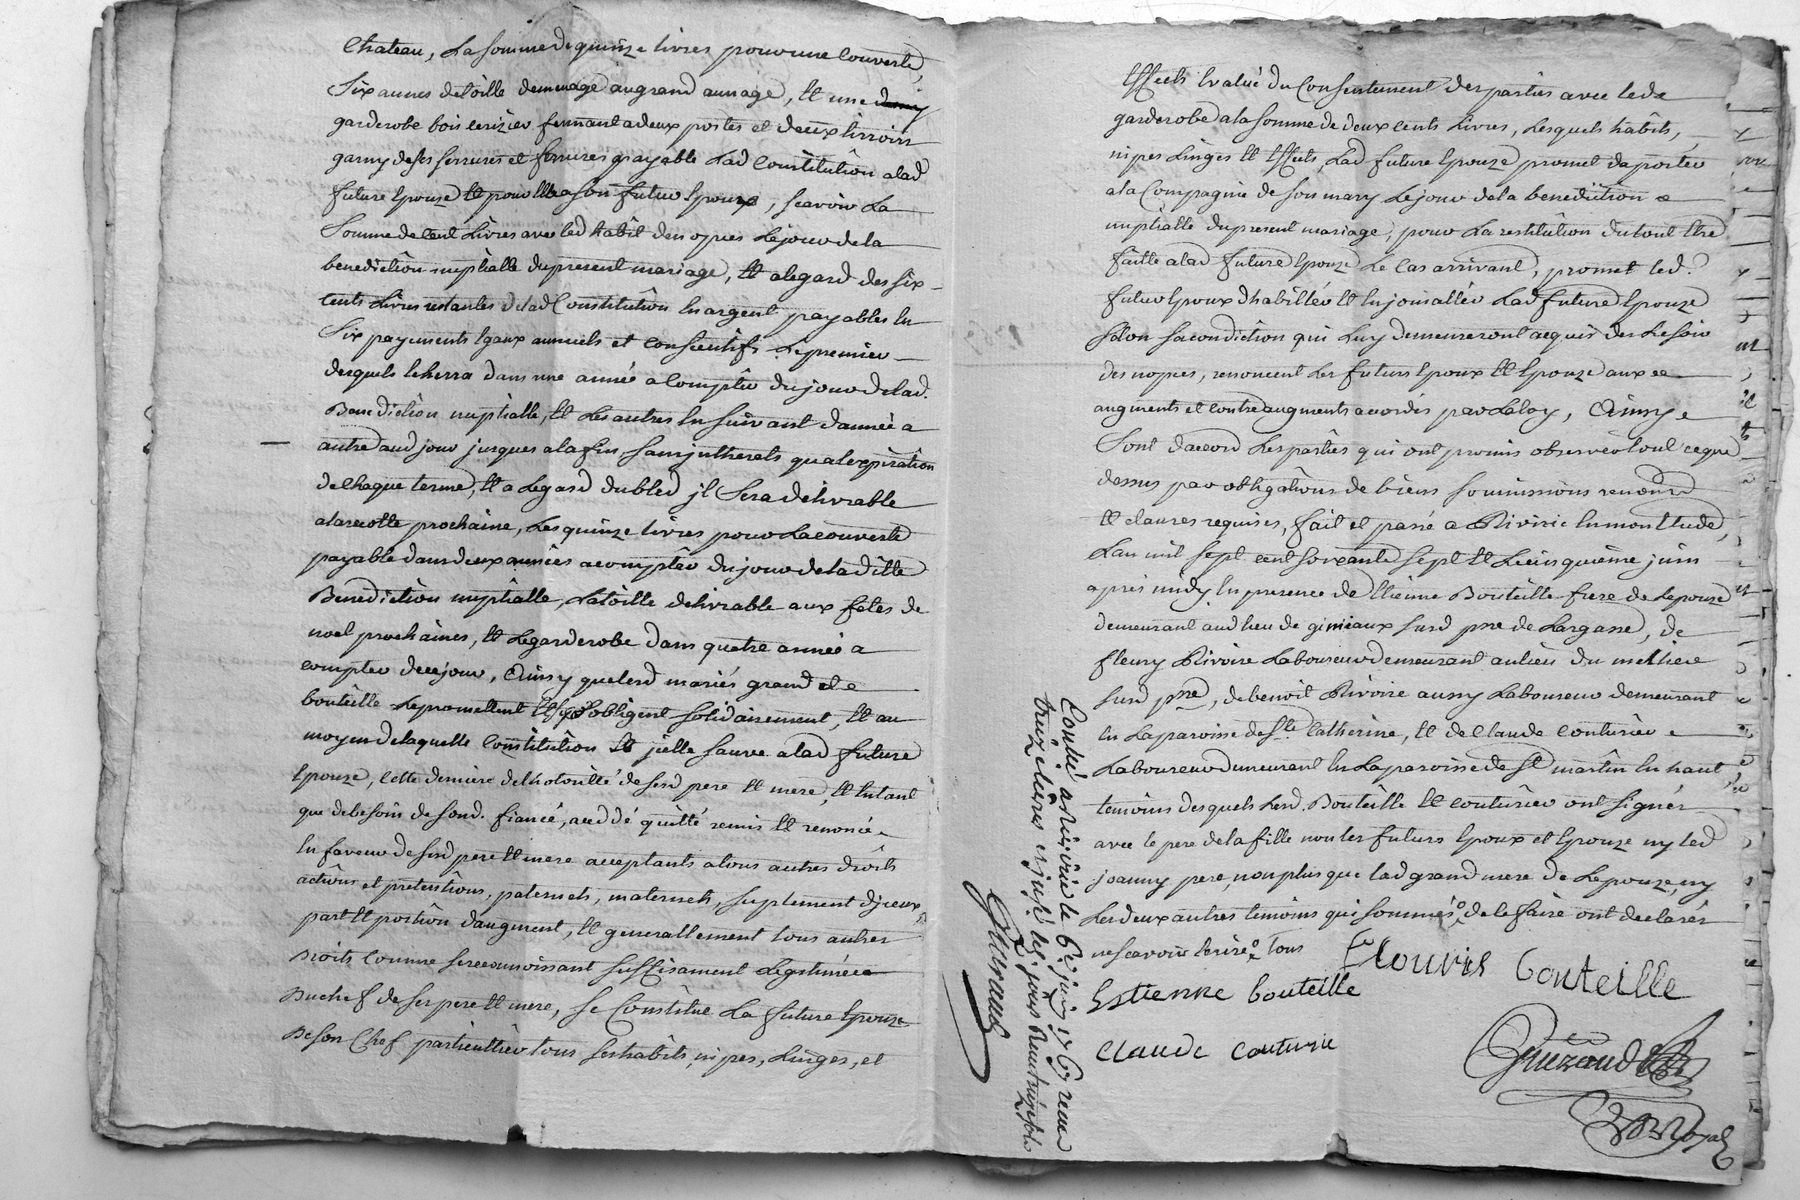 Chateau, La somme de quinze livres pour une Couverte,
Six aunes de toille de menage au grand aunage, Et une
garderobe bois cerizier fermant a deux portes et deux tirroirs
garny de ses serrures et ferrures payable Lad Constitution alad
future Epouze Et pour Elle a son futur Epoux, scavoir La
Somme de Cent Livres avec led habit de nopces Le jour de la
benediction nuptialle du present mariage, Et alegard des six
cents Livres restantes delad Constitution En argent payables En
Six payements Egaux annuels et consecutifs Le premier
desquels Echerra dans une année a Compter du jour delad.
Benediction nuptialle, Et Les autres En suivant d'année a
autre aud jour jusques a la fin, sans jntherets qu'a l'expiration
de Chaque terme, Et a Legard du bled jl Sera delivrable
a la recolte prochaine, Les quinze livres pour La couverte
payable dans deux années a compter du jour de la ditte
Benediction nuptialle, La toille delivrable aux fetes de
noel prochaines, Et Le garderobe dans quatre année a
compter de ce jour, Ainsy que lesd mariés grand et
bouteille Le promettent Et s'obligent solidairement, Et au
moyen de laquelle Constitution Et jcelle sauve a lad future
Epouze, cette derniere de L'hotorité de sesd pere Et mere, Et En tant
que de besoin de sond. fiancé, a cedé quitté remis Et renoncé
En faveur de sesd pere Et mere acceptants a tous autres droits
actions et pretentions, paternels, maternels, suplement d'jceux,
part Et portion d'augment, Et generallement tous autres
Droits Comme se reconnoissant suffisament Legitimée
Du chef de ses pere Et mere, se Constitue La future Epouze
De son Chef particullier tous ses habits, nipes, Linges, et
Effects Evalué du Consentement des parties avec led
garderobe a la somme de deux cents Livres, Lesquels habits,
nipes Linges Et Effects, Lad future Epouze promet d'aporter
a la Compagnie de son mary Le jour de la benediction
nuptialle du present mariage, pour La restitution du tout Etre
faitte a lad future Epouze Le Cas arrivant, promet led.
futur Epoux d'habiller Et Enjoualler Lad future Epouze
Selon sa condiction qui Luy demeureront acquis des Le soir
des nopces, renoncent Les futurs Epoux Et Epouze aux
augments et contre augments accordés par La Loy, Ainsy
Sont d'accord Les parties qui ont promis observer tout ce que
dessus par obligations de biens soumissions renond
Et clauses requises, fait et passé a Riverie En mon Etude,
L'an mil sept cent soixante sept Et Le cinquieme juin
apres midy En presence de Etienne Bouteille frere de Lepouze
demeurant aud lieu de gimeaux susd psse de Largasse, de
fleury Rivoire Laboureur demeurant au lieu du
susd psse, de benoit Rivoire aussy Laboureur demeurant
En La paroisse de Ste Catherine, Et de Claude Couturier
Laboureur demeurant En La paroisse de St martin En haut
temoins desquels Lesd. Bouteille Et couturier ont signés
avec le pere de la fille non les futurs Epoux et Epouze ny led
joanny pere, non plus que lad grand mere de Lepouze, ny
Les deux autres temoins qui sommés de le faire ont declarés
ne scavoir Ecrire tous
Flouris bouteille
Estienne bouteille
Claude couturie
Gueraud
Nore Royal
Conllé a riverie le 6e juin 1767 reçu
treize livres
Gueraud